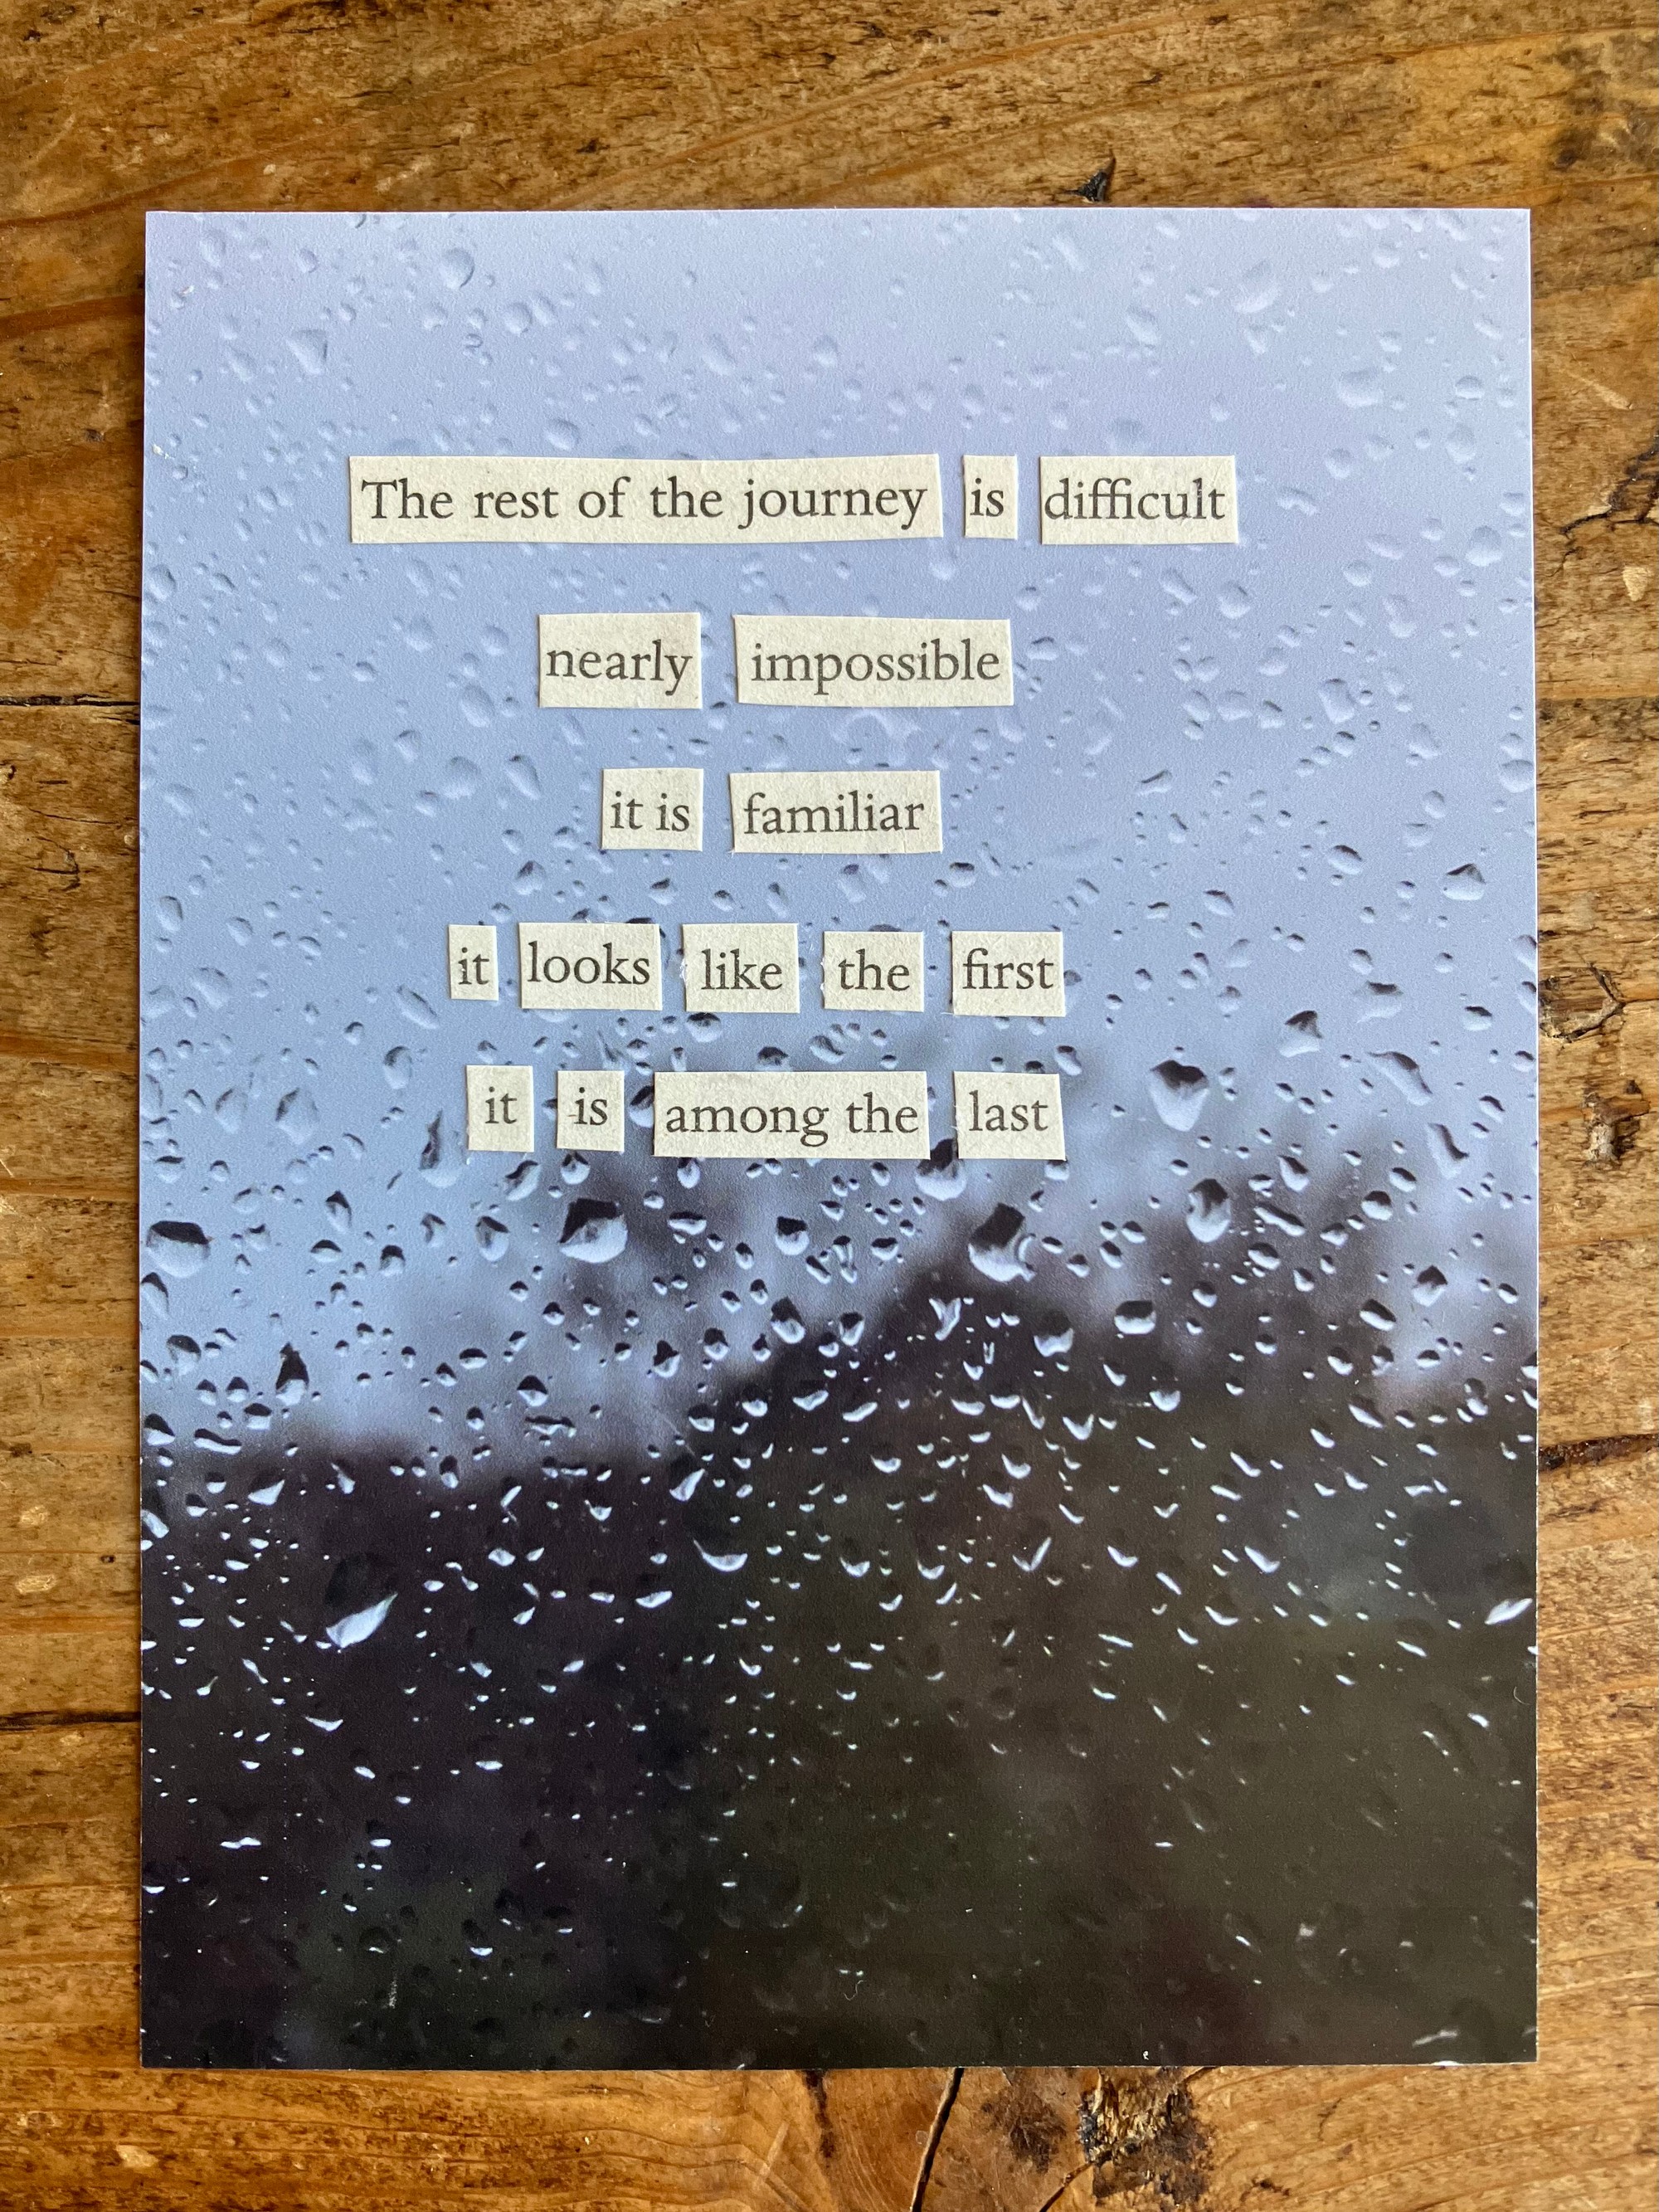 The rest of the journey is difficult
nearly impossible
it is familiar
it looks like the first
it is among the last